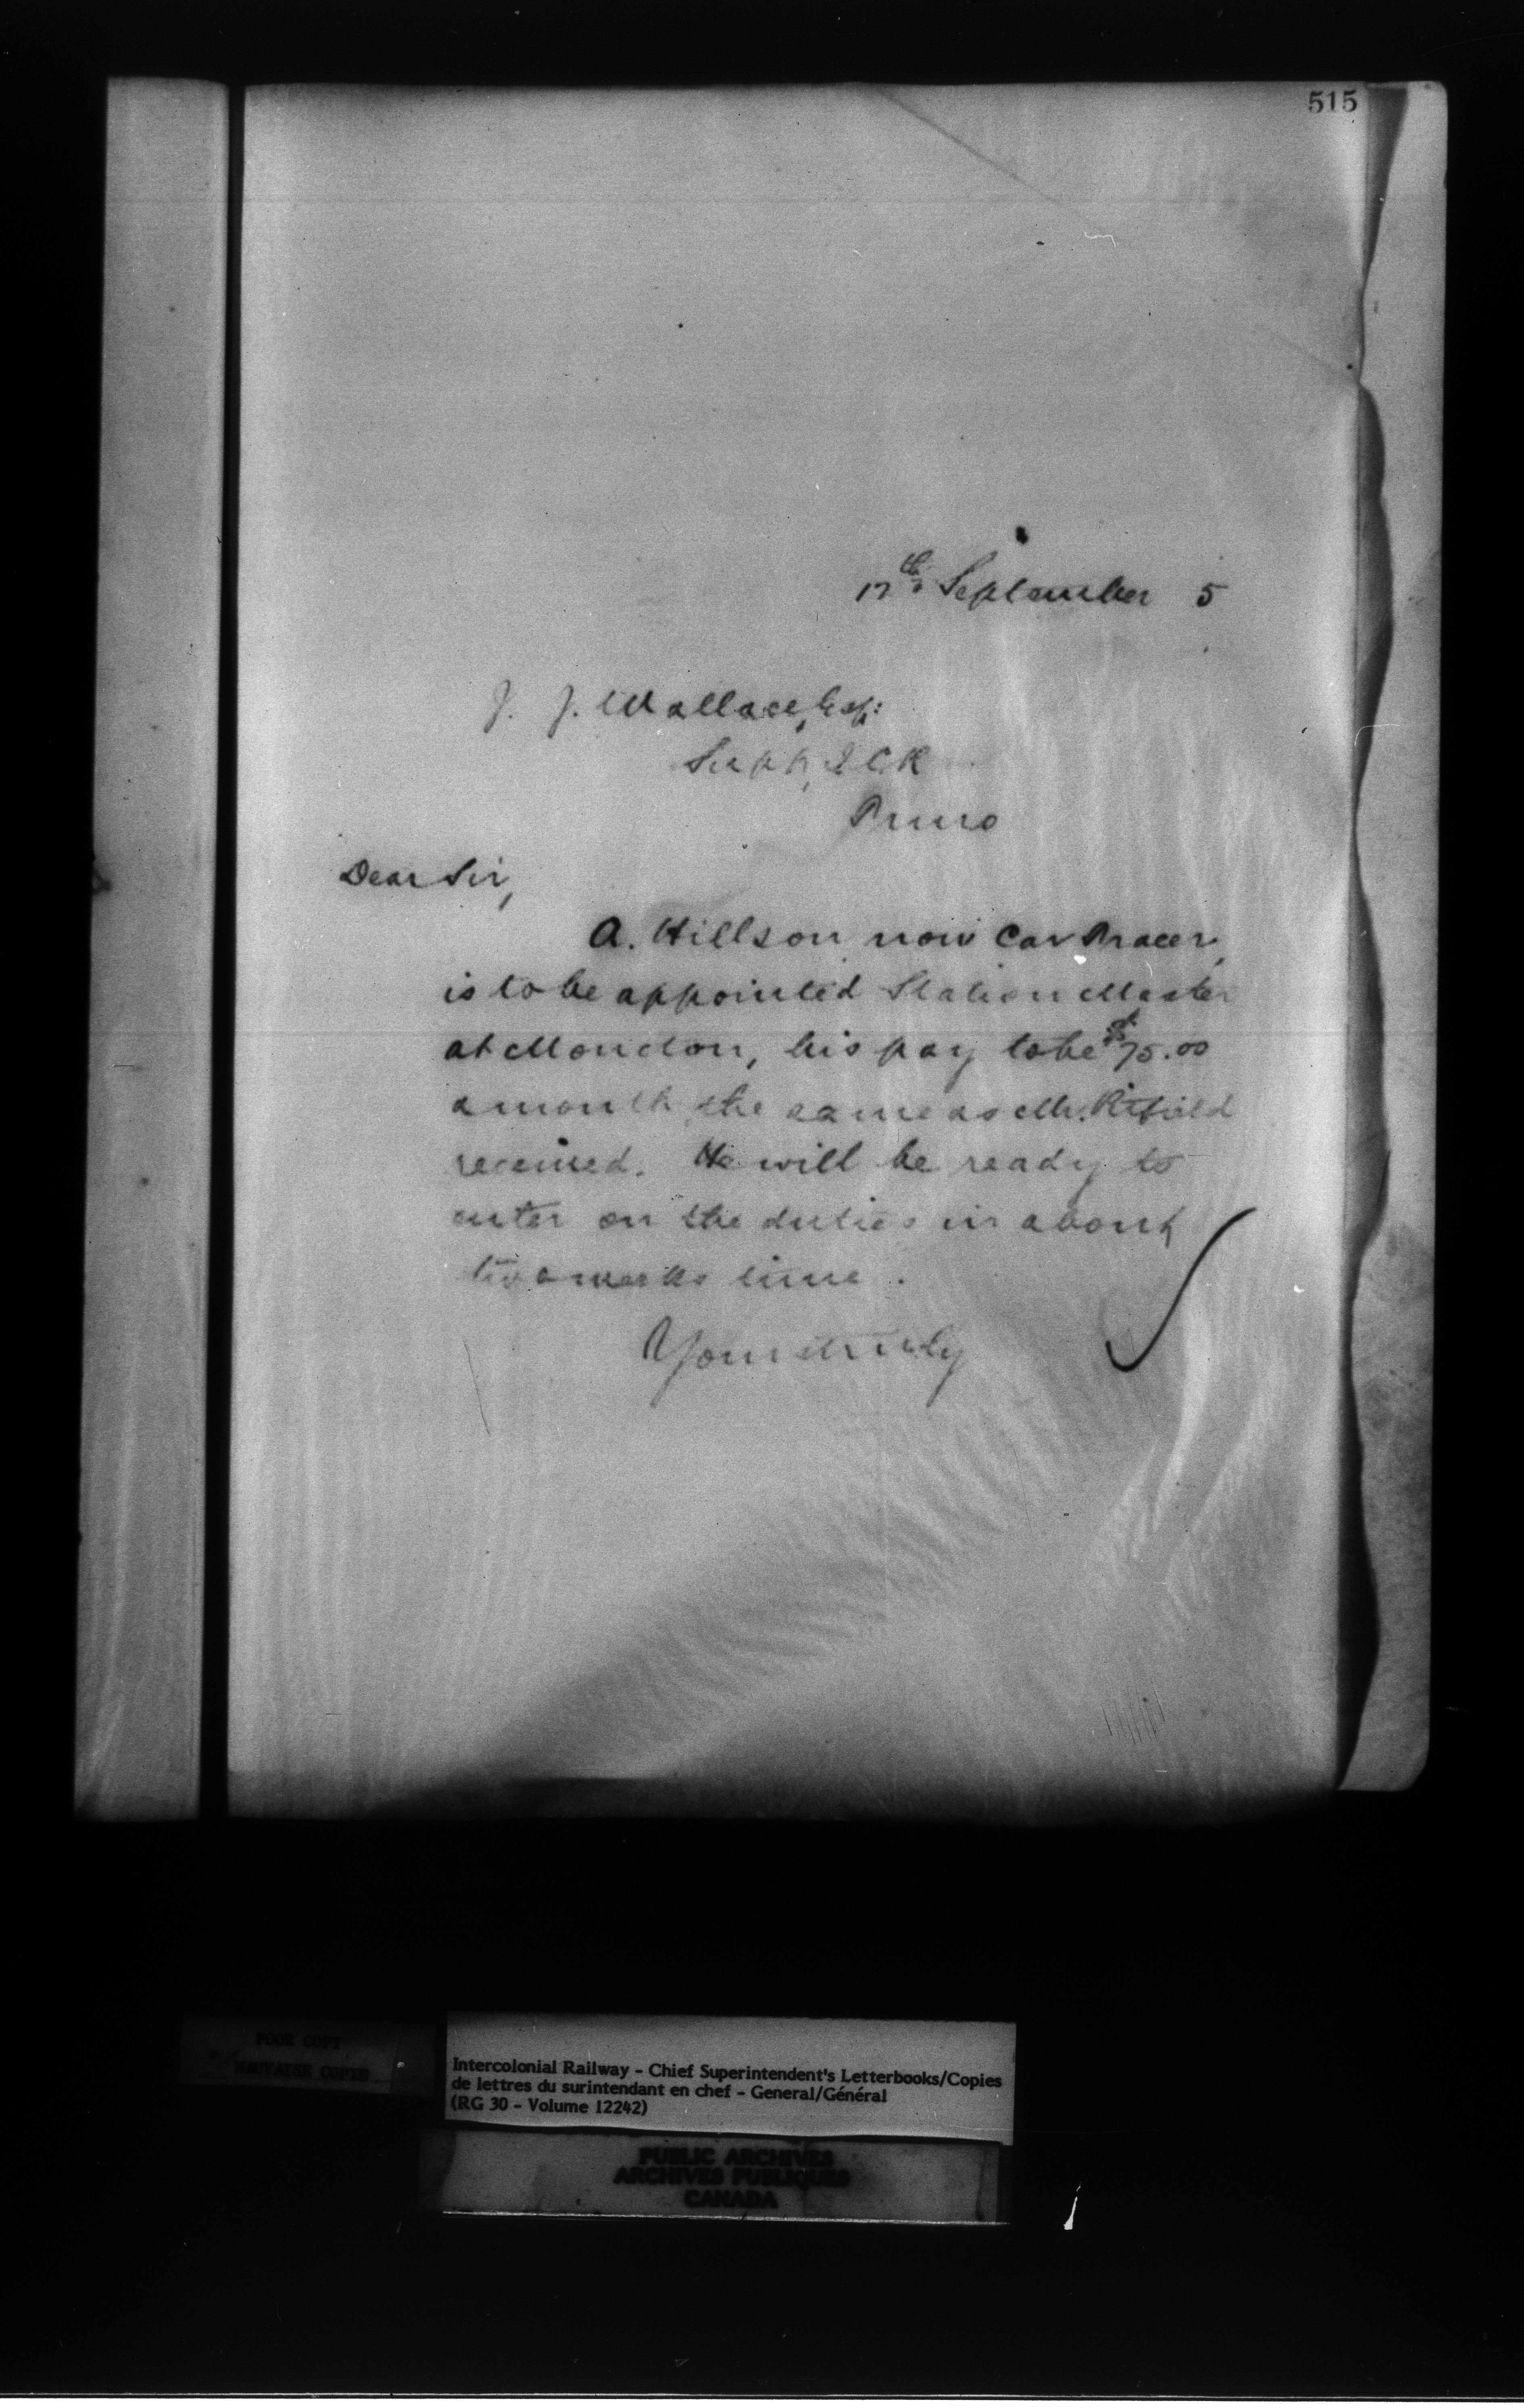 515
17th September 5
J. J. Wallace, Esq:
Supt, I C R
Truro
Dear Sir,
A. Hillson now Car Tracer,
is to be appointed Station Master
at Moncton, his pay to be $75.00
a month, the same as Mr.
received. He will be ready to
enter on the duties in about
two weeks time.
Yours truly
POOR COPY
MAUVAISE COPIE
Intercolonial Railway - Chief Superintendent's Letterbooks/Copies
de lettres du surintendant en chef - General/Général
(RG 30 - Volume 12242)
PUBLIC ARCHIVES
ARCHIVES PUBLIQUES
CANADA